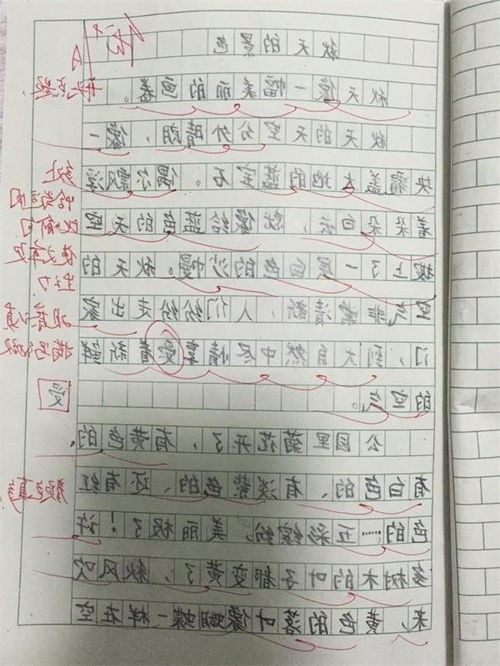 秋天的景色
秋天像一幅美丽的画卷。
秋天的天空分外晴朗,像一
块覆盖大地的蓝宝石。偶尔飘浮
着朵朵白云,就像给蓝色的天空
披上了一层白色的沙幔。秋天的
空气非常清新,人们纷纷走出家
门,到大自然中尽情享受着新鲜
的空气。
公园里菊花开了,有黄色的、
有白色的、有淡紫色的、还有红
色的……五彩缤纷,美丽极了!许
多树木的叶子都变黄了;秋风吹
来,黄色的落叶像蝴蝶一样在空
受